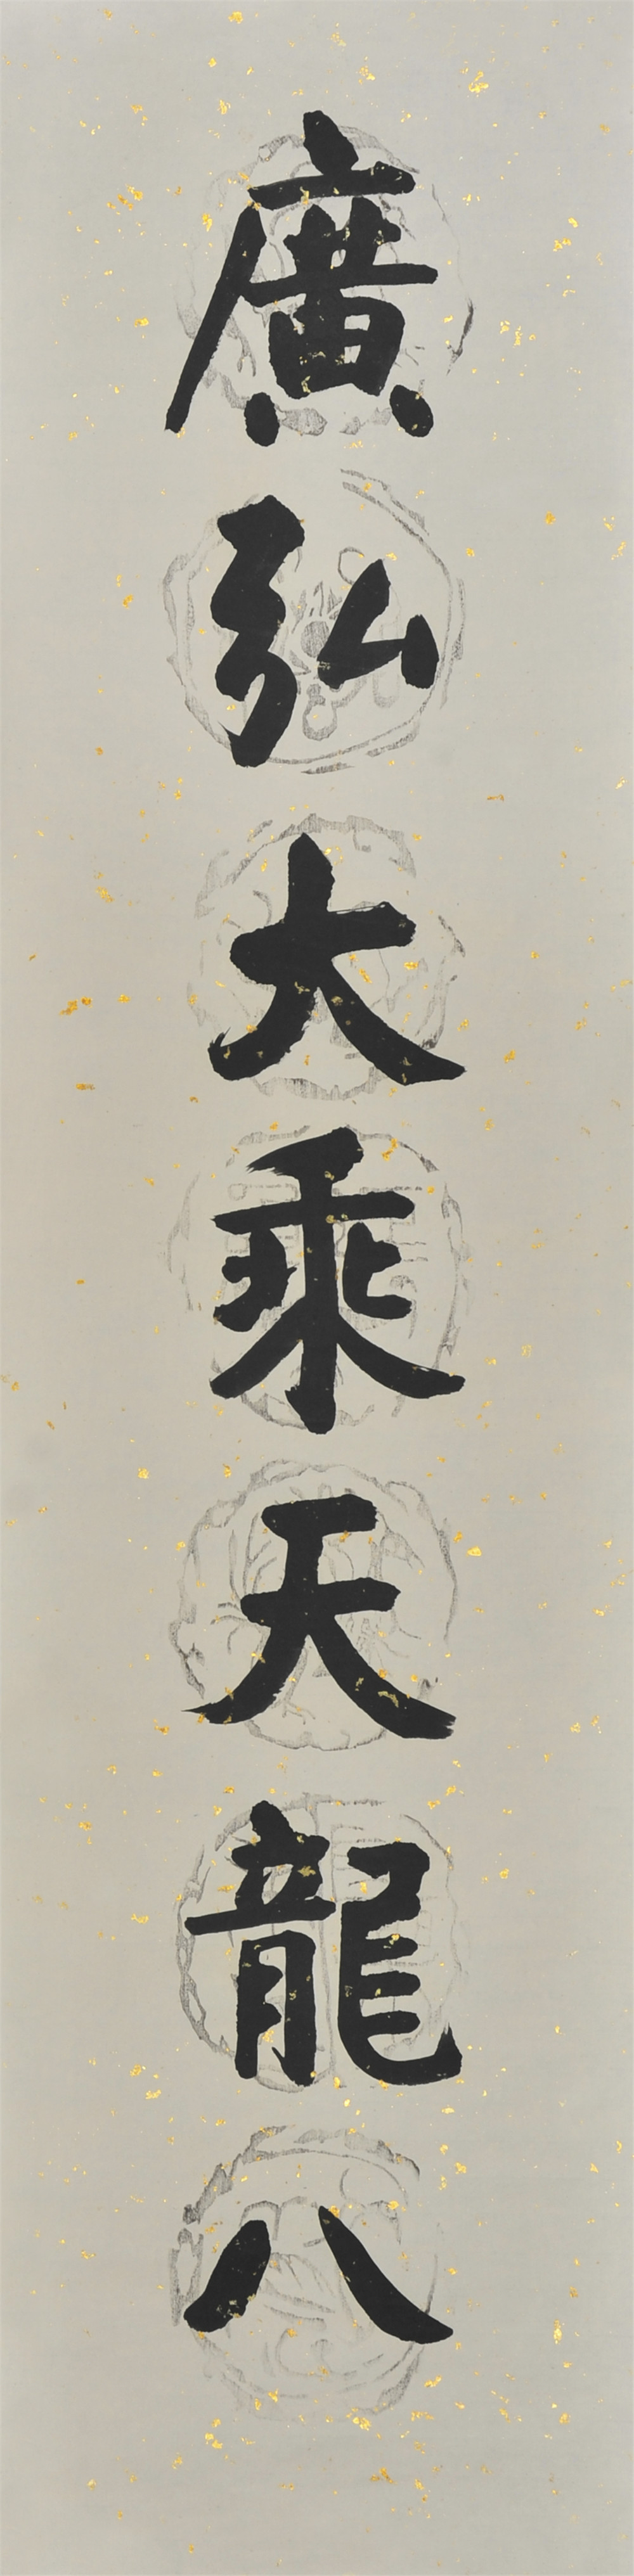 廣弘大乘天龍八